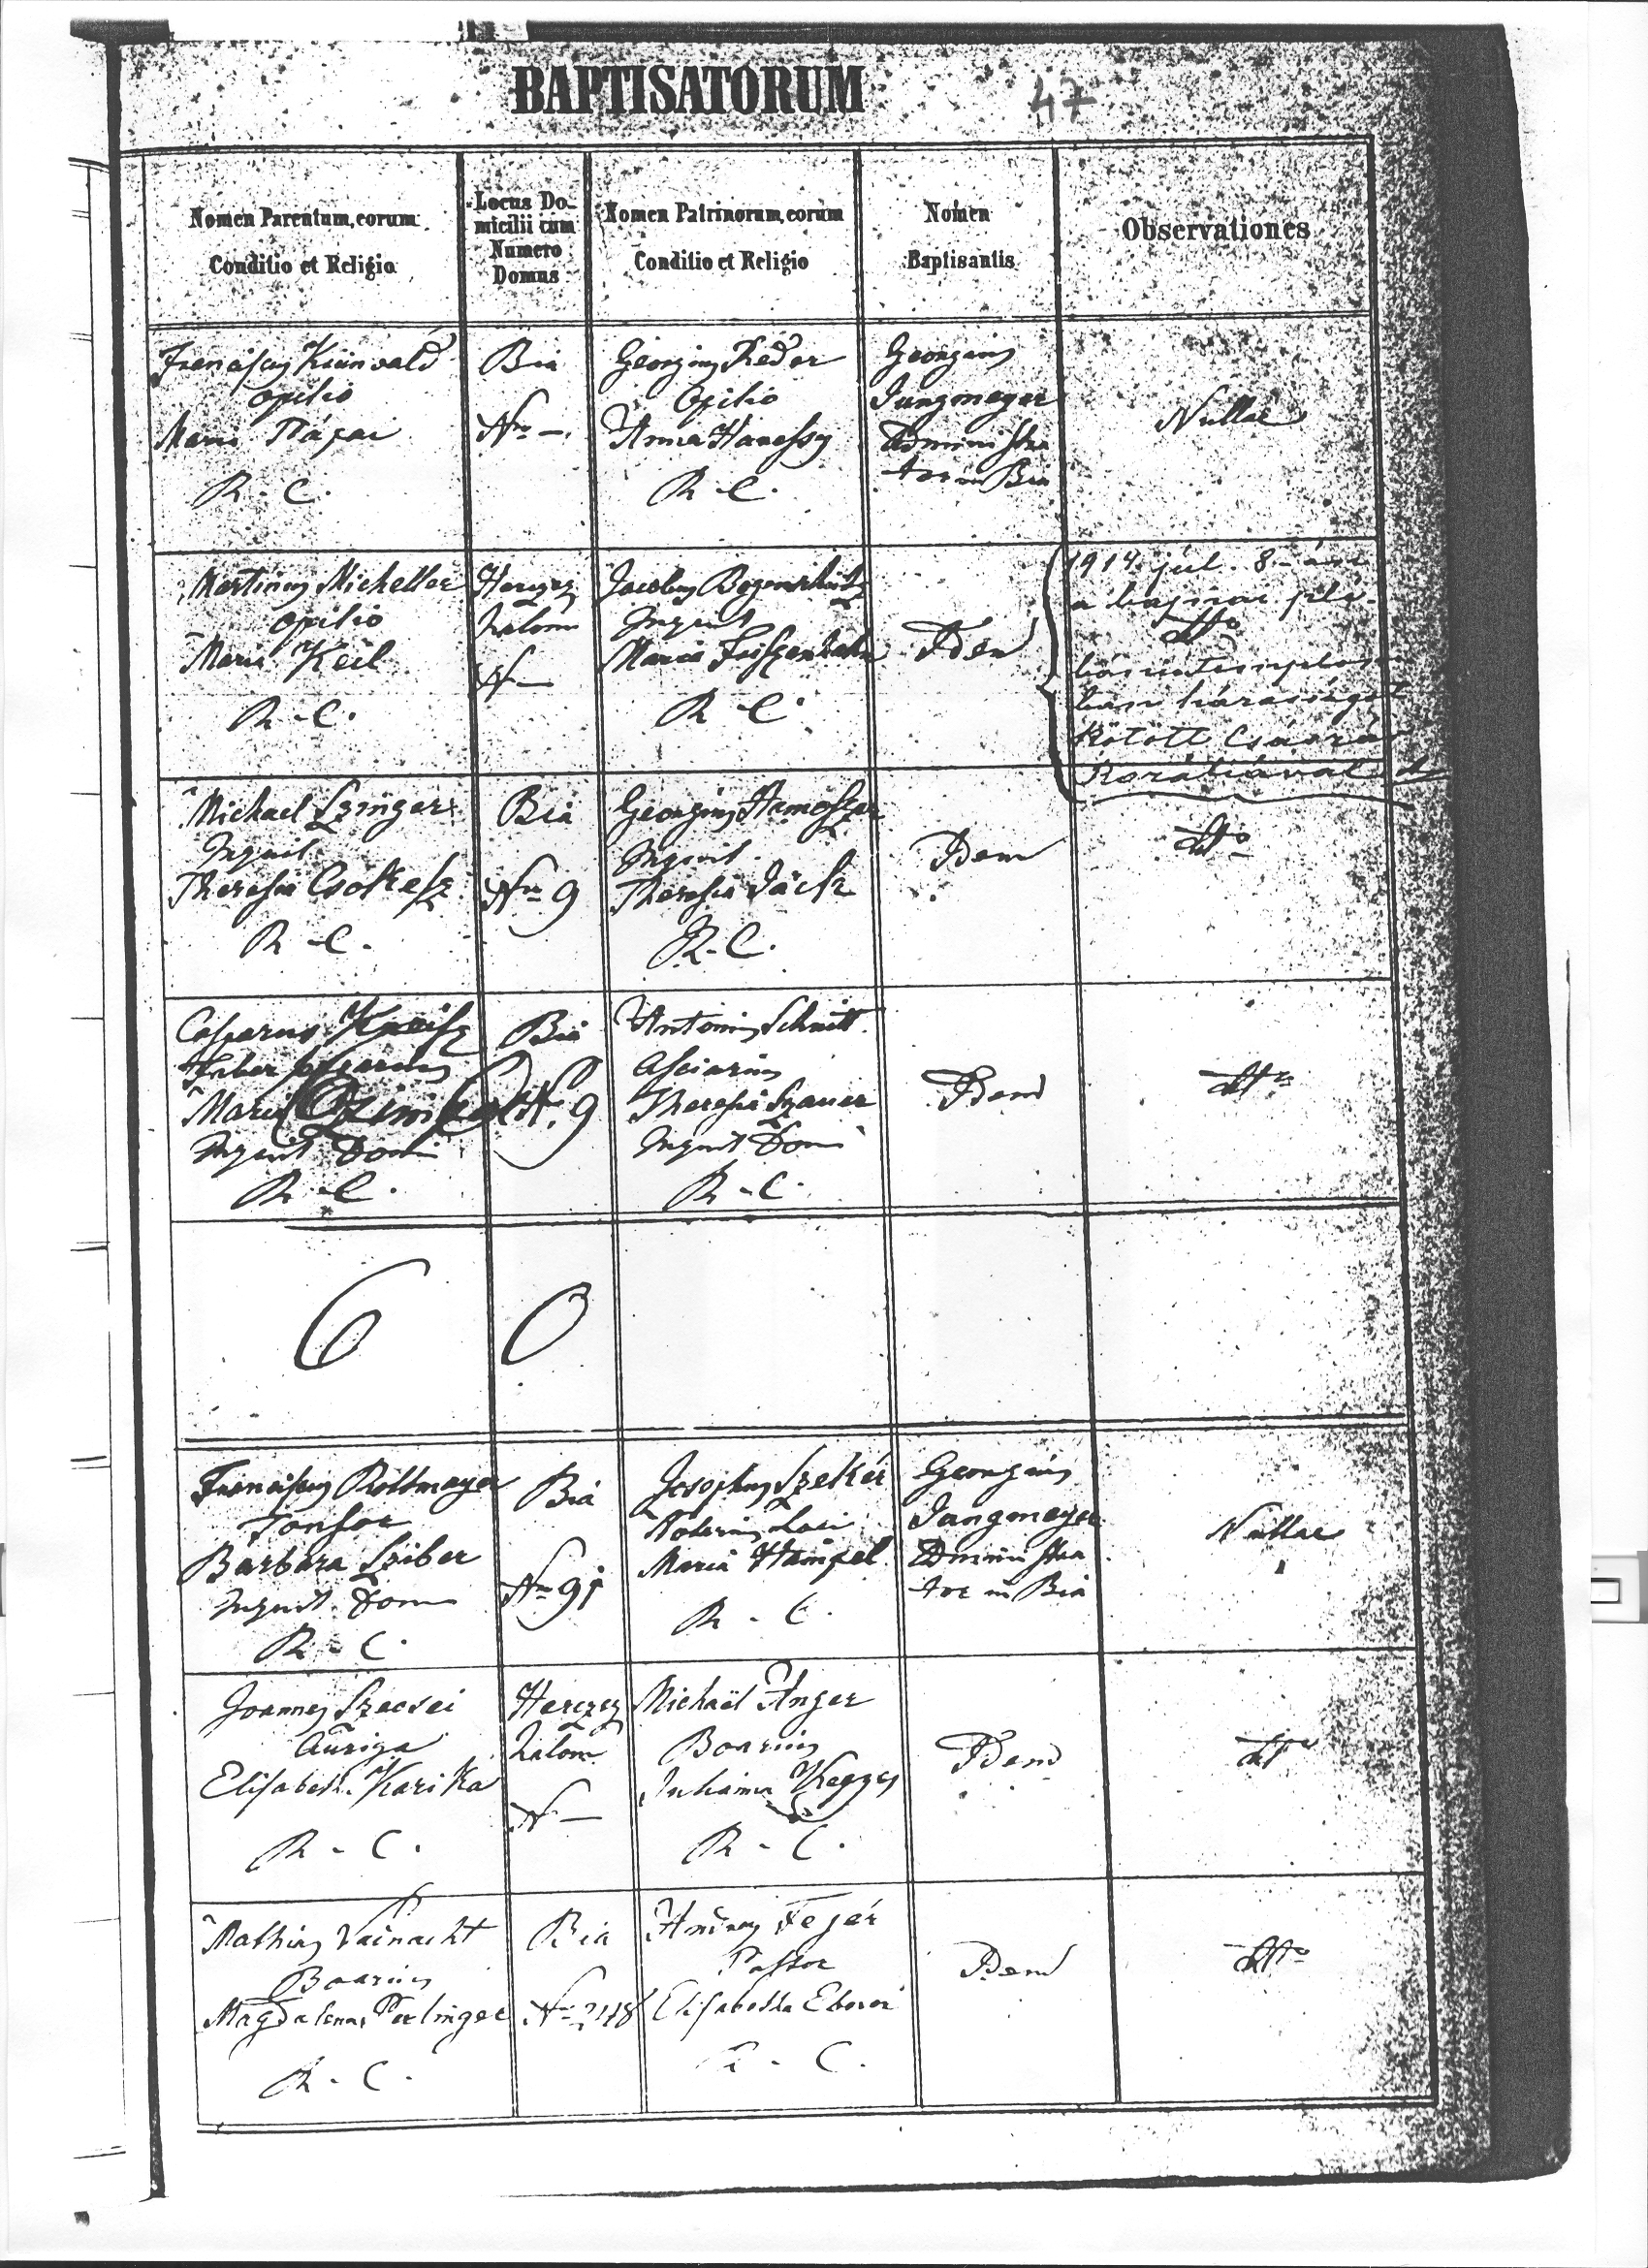 BAPTISATORUM
47
Nomen Parentum, eorum
Conditio et Religio
Locus Do-
micilii cum
Numero
Domus
Nomen Patrinorum, eorum
Conditio et Religio
Nomen
Baptisantis
Observationes
Franciscus Künvald
opilio
Maria
R. C.
Bia
Nro —.
Georgius Reder
Opilio
Anna
R. C.
Georgius
Jungmeyer
Administra
tor in Bia
Nullae
Martinus Micheller
opilio
Maria Keil
R. C.
Herczeg
halom
N —
Jacobus
Inquil
Maria
R. C.
Idem
1914. júl. 8.-án
a bajnai plé-
dtto
bánia templom
ban házasságot
kötött
Michael Szinger
Inquil.
Theresia
R. C.
Bia
Nro 9
Georgius
Inquil.
Theresia Jäck
R. C.
Idem
dtto
Casparus
Faber
Maria
Inquil Dom
R. C.
Bia
N. 9
Antonius Schmitt
Asciarius
Theresia Szauer
Inquil Dom
R. C.
Idem
dtto
6
0
Franciscus Rottmayer
Tonsor
Barbara Sziber
Inquil. Dom
R. C.
Bia
Nro 91
Josephus Szekér
Notarius Loci
Maria Hampel
R. C.
Georgius
Jungmeyer
Administra
tor in Bia
Nullae
Joannes Szecsei
Auriga
Elisabeth. Karika
R. C.
Herczeg
halom
N —
Michaël Anger
Boarius
Juliana
R. C.
Idem
dtto
Mathias Vainacht
Boarius
Magdalena Perlinger
R. C.
Bia
N. 248
Andreas Fejér
Pastor
Elisabetha
R. C.
Idem
dtto